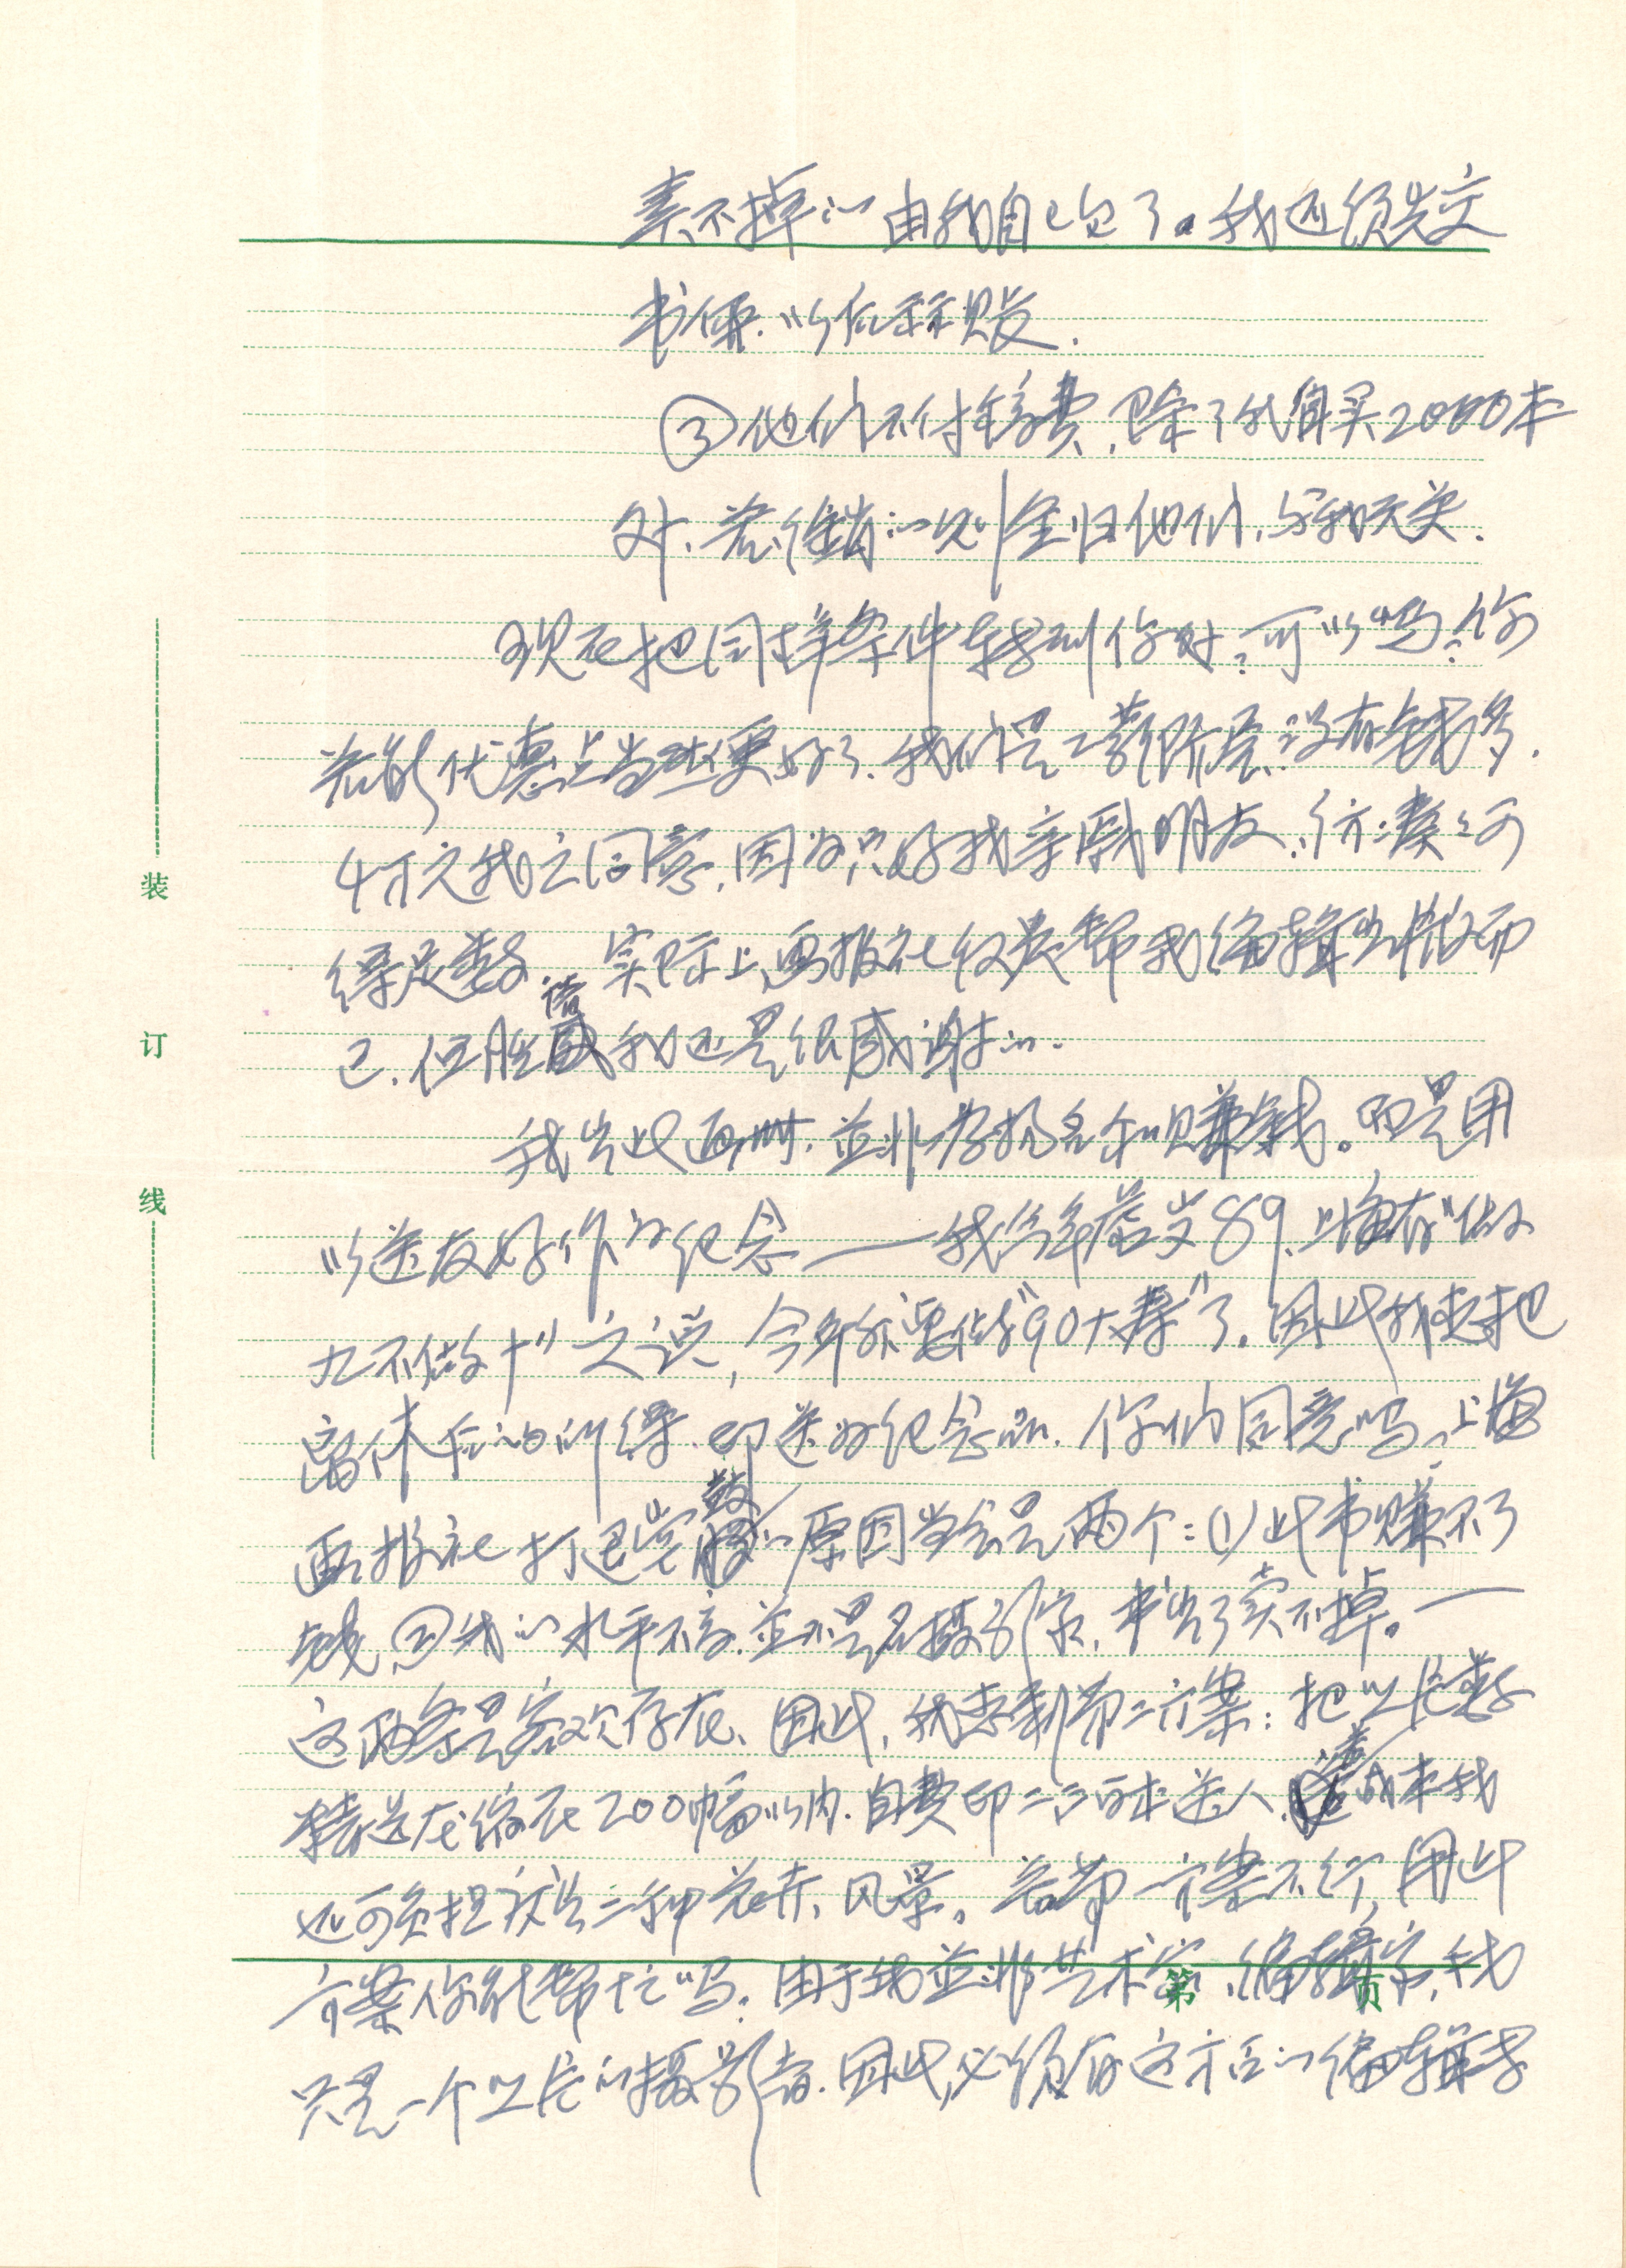 卖不掉的由我自己包了。我还须先交
书使以
③他们不付稿费,除了我自买2000本
外,若经销的一兑则全归他们,与我无关.
现在把同样条件转到你处,可以吗?你
若能优惠点当然更好了.我们是工薪阶层,没有钱多.
4万元我之同意,因为只好找亲戚朋友,凑之可
得足数.实际上画报社仅费帮我编辑出版而
已.但胜情我还是很感谢的.
我出此画册,并非为扬名和赚钱。而是用
以送友好作为纪念——我今年暮岁89.上海有"做
九不做十"之说,今年就要做"90大寿"了.因此我想把
离休后的所得.印送为纪念品.你们同意吗.上海
画报社打退堂鼓的原因当会是两个:①此书赚不了
钱,②我的水平不高.并不是名摄影家,书出了卖不掉。—
这两条是客观存在.因此,我想到第二方案:把以
精选在缩在200幅以内.自费印二三百本送人,这成本我
还可负担.花卉、风景。若第一方案不行,用此
方案你能帮忙吗.由于我并非艺术家、编辑家,我
只是一个的摄影者.因此,必须有这方面的编辑
装
订
线
第 页